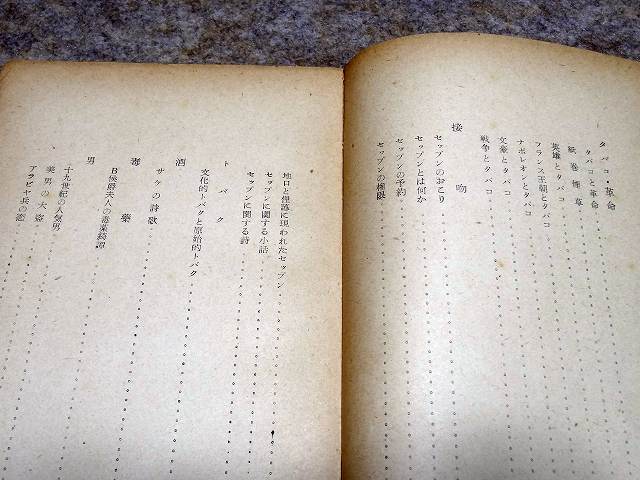 タバコ・革命
タバコと革命
紙巻煙草
英雄とタバコ
フランス王朝とタバコ
ナポレオンとタバコ
文豪とタバコ
戦争とタバコ
接吻
セップンのおこり
セップンとは何か
セップンの予約
セップンの極限
地口と俚諺に現われたセップン
セップンに関する小話
セップンに関する詩
トバク
文化的トバクと原始的トバク
酒
サケの詩歌
毒薬
B侯爵夫人の毒薬綺譚
男
十九世紀の人気男
美男の大盗
アラビヤ兵の恋